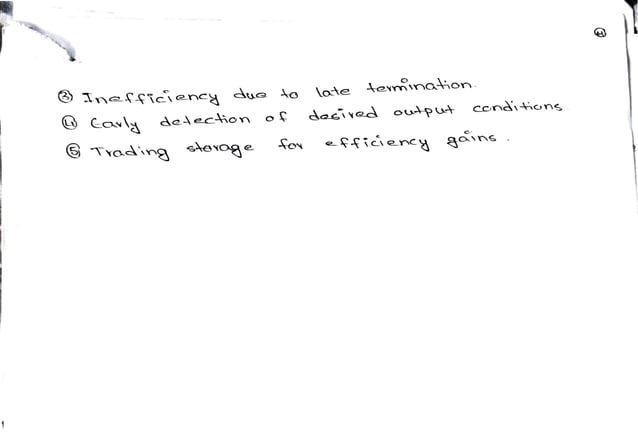 ③ Inefficiency due to late termination.
④ Early detection of desired output conditions
⑤ Trading storage for efficiency gains.